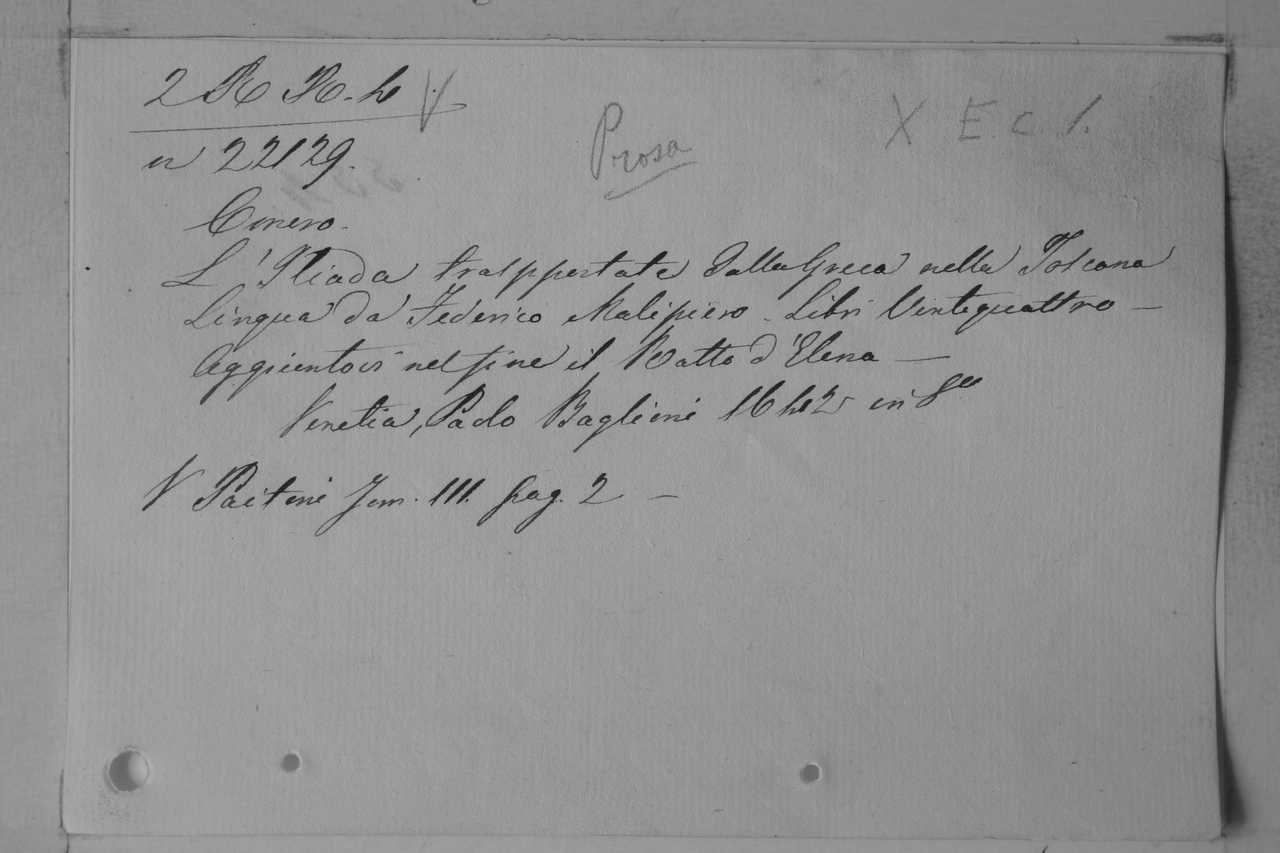 2 R R. h V
Prosa
X E c 1.
n 22129.
Omero.
L'Iliada trasppostata dalla Greca nella Toscana
Lingua da Federico Malipiero. Libri Vintiquattro —
Aggiuntovi nel fine il Ratto d'Elena —
Venetia, Paolo Baglioni 1642 in 8°
V Paitoni Tom. III. pag. 2 —